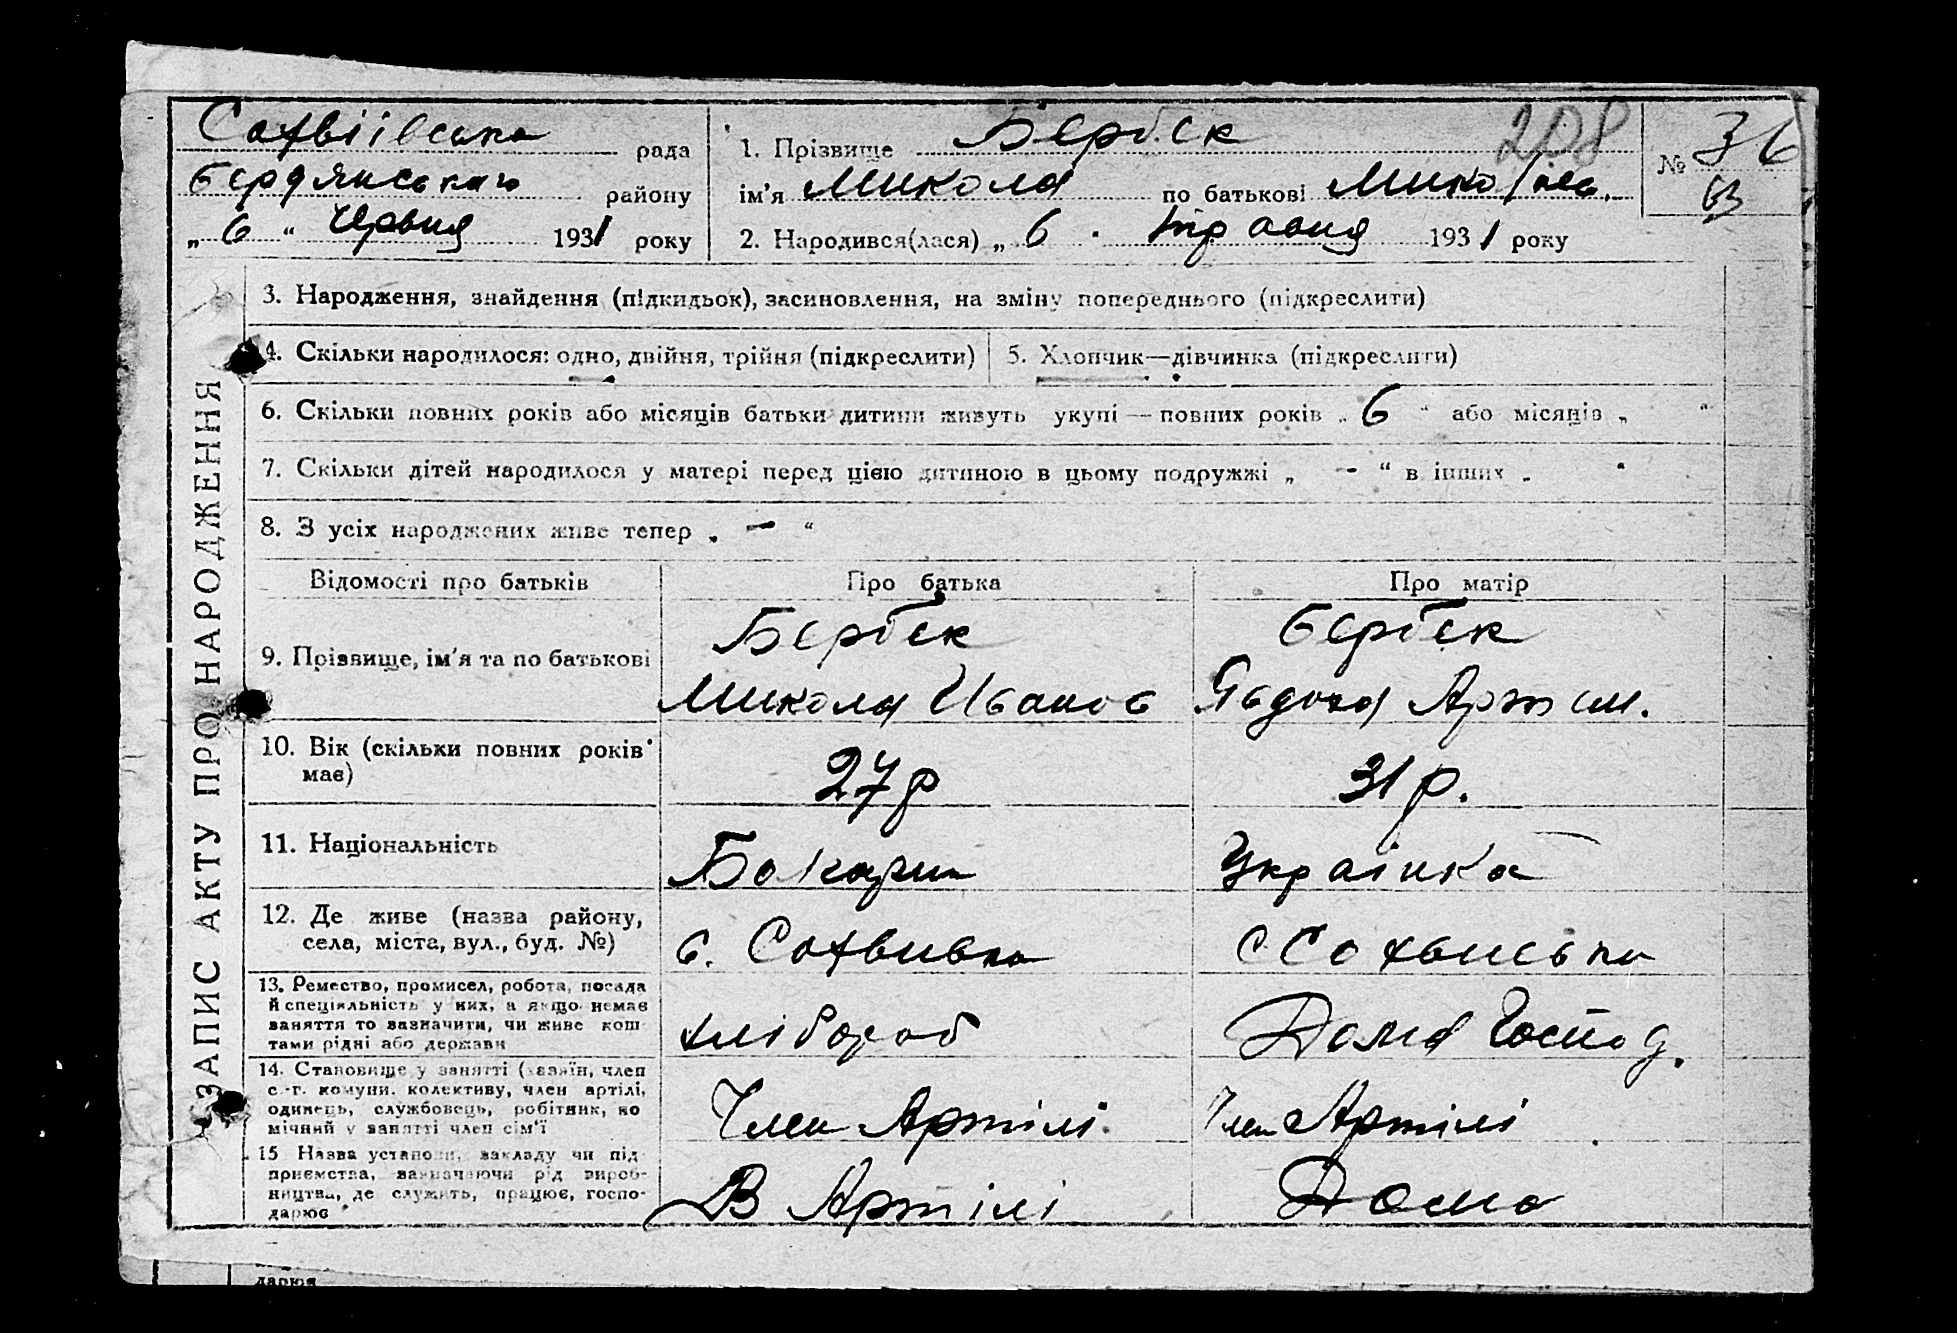 Софвіївська рада
Бердянського району
„ 6 “ червня 1931 року
1. Прізвище Бербек 208
ім'я Микола по батькові Микол
2. Народився(лася) „ 6 травня 1931 року
№ 36
ЗАПИС АКТУ ПРО НАРОДЖЕННЯ
3. Народження, знайдення (підкидьок), засиновлення, на зміну попереднього (підкреслити)
4. Скільки народилося: одно, двійня, трійня (підкреслити)
5. Хлопчик—дівчинка (підкреслити)
6. Скільки повних років або місяців батьки дитини живуть укупі — повних років „ 6 “ або місяців „ “
7. Скільки дітей народилося у матері перед цією дитиною в цьому подружжі „ - “ в інших „ “
8. З усіх народжених живе тепер „ — “
Відомості про батьків
Про батька
Про матір
9. Прізвище, ім'я та по батькові
Бербек
Микола Иванов
Бербек
Явдоха Артем.
10. Вік (скільки повних років
має)
27 р
31 р.
11. Національність
Українка
12. Де живе (назва району,
села, міста, вул., буд. №)
с. Софвивка
13. Ремество, промисел, робота, посада
й спеціяльність у них, а якщо немає
заняття то зазначити, чи живе кош-
тами рідні або держави
хлібороб
Дома Господ.
14. Становище у занятті (хазяїн, член
с.-г. комуни, колективу, член артілі,
одинець, службовець, робітник, по
мічний у занятті член сім'ї
Член Артілі
Член Артілі
15 Назва установи, закладу чи під
приємства, зазначаючи рід вироб-
ництва, де служить, працює, госпо-
дарює
В Артілі
Дома
дарює